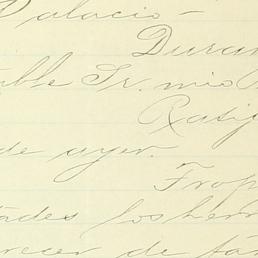 Palacio -
Duran
ble Sr. mio
Ratif
de ayer.
Trop
tades los herr
recer de tan